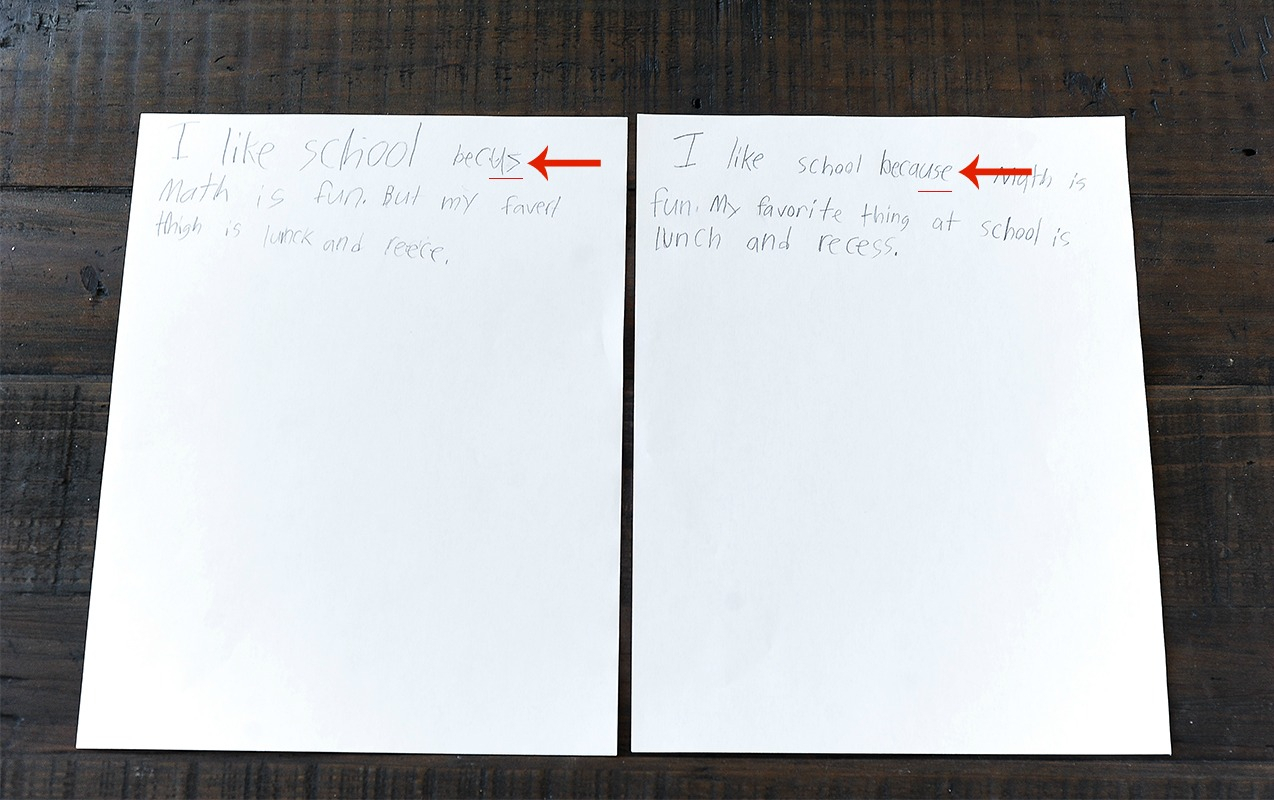 I like school
Math is fun. But my faverl
thigh is lunck and reece.
I like school because Math is
fun. My favorite thing at school is
lunch and recess.